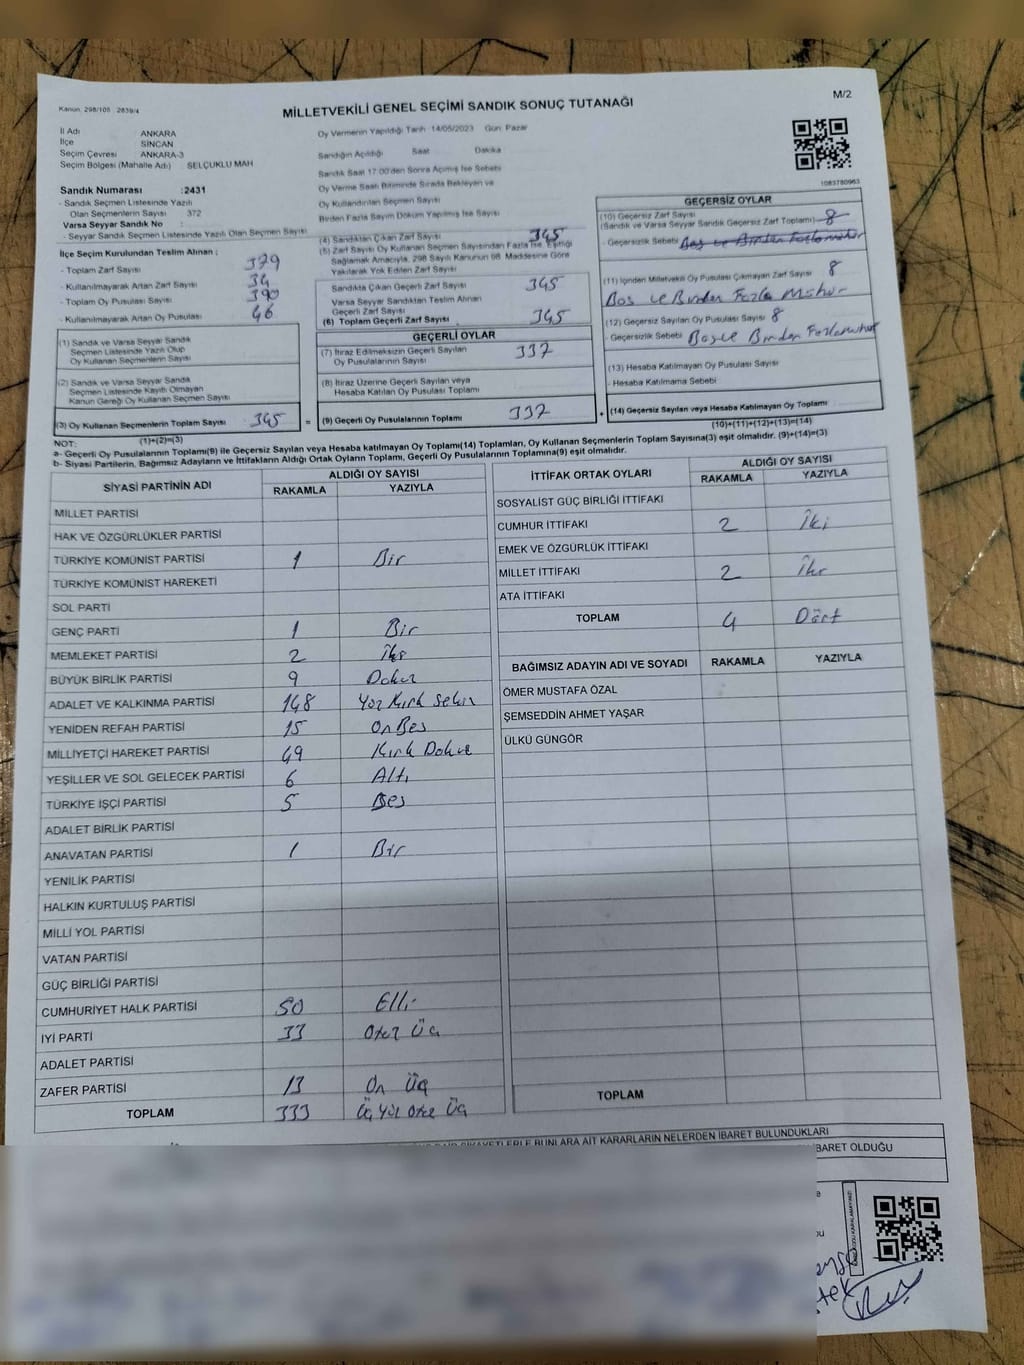 Kanun: 298/105 2839/4
MİLLETVEKİLİ GENEL SEÇİMİ SANDIK SONUÇ TUTANAĞI
M/2
İl Adı ANKARA
İlçe SİNCAN
Seçim Çevresi ANKARA-3
Seçim Bölgesi (Mahalle Adı) : SELÇUKLU MAH
Sandık Numarası :2431
- Sandık Seçmen Listesinde Yazılı
Olan Seçmenlerin Sayısı 372
Varsa Seyyar Sandık No :
- Seyyar Sandık Seçmen Listesinde Yazılı Olan Seçmen Sayısı
İlçe Seçim Kurulundan Teslim Alınan :
- Toplam Zarf Sayısı 379
- Kullanılmayarak Artan Zarf Sayısı 34
- Toplam Oy Pusulası Sayısı 390
- Kullanılmayarak Artan Oy Pusulası 46
(1) Sandık ve Varsa Seyyar Sandık
Seçmen Listesinde Yazılı Olup
Oy Kullanan Seçmenlerin Sayısı
(2) Sandık ve Varsa Seyyar Sandık
Seçmen Listesinde Kayıtlı Olmayan
Kanun Gereği Oy Kullanan Seçmen Sayısı
(3) Oy Kullanan Seçmenlerin Toplam Sayısı 345
(1)+(2)=(3)
Oy Vermenin Yapıldığı Tarih :14/05/2023 Gün: Pazar
Sandığın Açıldığı Saat Dakika
Sandık Saat 17:00'den Sonra Açılmış İse Sebebi
Oy Verme Saati Bitiminde Sırada Bekleyen ve
Oy Kullandırılan Seçmen Sayısı
Birden Fazla Sayım Döküm Yapılmış İse Sayısı
(4) Sandıktan Çıkan Zarf Sayısı 345
(5) Zarf Sayısı Oy Kullanan Seçmen Sayısından Fazla İse, Eşitliği
Sağlamak Amacıyla, 298 Sayılı Kanunun 98. Maddesine Göre
Yakılarak Yok Edilen Zarf Sayısı
Sandıkta Çıkan Geçerli Zarf Sayısı 345
Varsa Seyyar Sandıktan Teslim Alınan
Geçerli Zarf Sayısı
(6) Toplam Geçerli Zarf Sayısı 345
GEÇERLİ OYLAR
(7) İtiraz Edilmeksizin Geçerli Sayılan
Oy Pusulalarının Sayısı 337
(8) İtiraz Üzerine Geçerli Sayılan veya
Hesaba Katılan Oy Pusulası Toplamı
= (9) Geçerli Oy Pusulalarının Toplamı 337
1083780963
GEÇERSİZ OYLAR
(10) Geçersiz Zarf Sayısı
(Sandık ve Varsa Seyyar Sandık Geçersiz Zarf Toplamı) 8
- Geçersizlik Sebebi Boş ve Birden Fazla
(11) İçinden Milletvekili Oy Pusulası Çıkmayan Zarf Sayısı 8
Boş ve Birden Fazla Mühür
(12) Geçersiz Sayılan Oy Pusulası Sayısı 8
- Geçersizlik Sebebi Boş ve Birden Fazla mühür
(13) Hesaba Katılmayan Oy Pusulası Sayısı
- Hesaba Katılmama Sebebi
+ (14) Geçersiz Sayılan veya Hesaba Katılmayan Oy Toplamı
(10)+(11)+(12)+(13)=(14)
NOT:
a- Geçerli Oy Pusulalarının Toplamı(9) ile Geçersiz Sayılan veya Hesaba katılmayan Oy Toplamı(14) Toplamları, Oy Kullanan Seçmenlerin Toplam Sayısına(3) eşit olmalıdır. (9)+(14)=(3)
b- Siyasi Partilerin, Bağımsız Adayların ve İttifakların Aldığı Ortak Oyların Toplamı, Geçerli Oy Pusulalarının Toplamına(9) eşit olmalıdır.
SİYASİ PARTİNİN ADI ALDIĞI OY SAYISI
RAKAMLA YAZIYLA
MİLLET PARTİSİ
HAK VE ÖZGÜRLÜKLER PARTİSİ
TÜRKİYE KOMÜNİST PARTİSİ 1 Bir
TÜRKİYE KOMÜNİST HAREKETİ
SOL PARTİ
GENÇ PARTİ 1 Bir
MEMLEKET PARTİSİ 2 İki
BÜYÜK BİRLİK PARTİSİ 9 Dokuz
ADALET VE KALKINMA PARTİSİ 148 Yüz Kırk Sekiz
YENİDEN REFAH PARTİSİ 15 On Beş
MİLLİYETÇİ HAREKET PARTİSİ 49 Kırk Dokuz
YEŞİLLER VE SOL GELECEK PARTİSİ 6 Altı
TÜRKİYE İŞÇİ PARTİSİ 5 Beş
ADALET BİRLİK PARTİSİ
ANAVATAN PARTİSİ 1 Bir
YENİLİK PARTİSİ
HALKIN KURTULUŞ PARTİSİ
MİLLİ YOL PARTİSİ
VATAN PARTİSİ
GÜÇ BİRLİĞİ PARTİSİ
CUMHURİYET HALK PARTİSİ 50 Elli
İYİ PARTİ 33 Otuz Üç
ADALET PARTİSİ
ZAFER PARTİSİ 13 On Üç
TOPLAM 333 Üç Yüz Otuz Üç
İTTİFAK ORTAK OYLARI ALDIĞI OY SAYISI
RAKAMLA YAZIYLA
SOSYALİST GÜÇ BİRLİĞİ İTTİFAKI
CUMHUR İTTİFAKI 2 İki
EMEK VE ÖZGÜRLÜK İTTİFAKI
MİLLET İTTİFAKI 2 İki
ATA İTTİFAKI
TOPLAM 4 Dört
BAĞIMSIZ ADAYIN ADI VE SOYADI RAKAMLA YAZIYLA
ÖMER MUSTAFA ÖZAL
ŞEMSEDDİN AHMET YAŞAR
ÜLKÜ GÜNGÖR
TOPLAM
BUNLARA AİT KARARLARIN NELERDEN İBARET BULUNDUKLARI
İBARET OLDUĞU